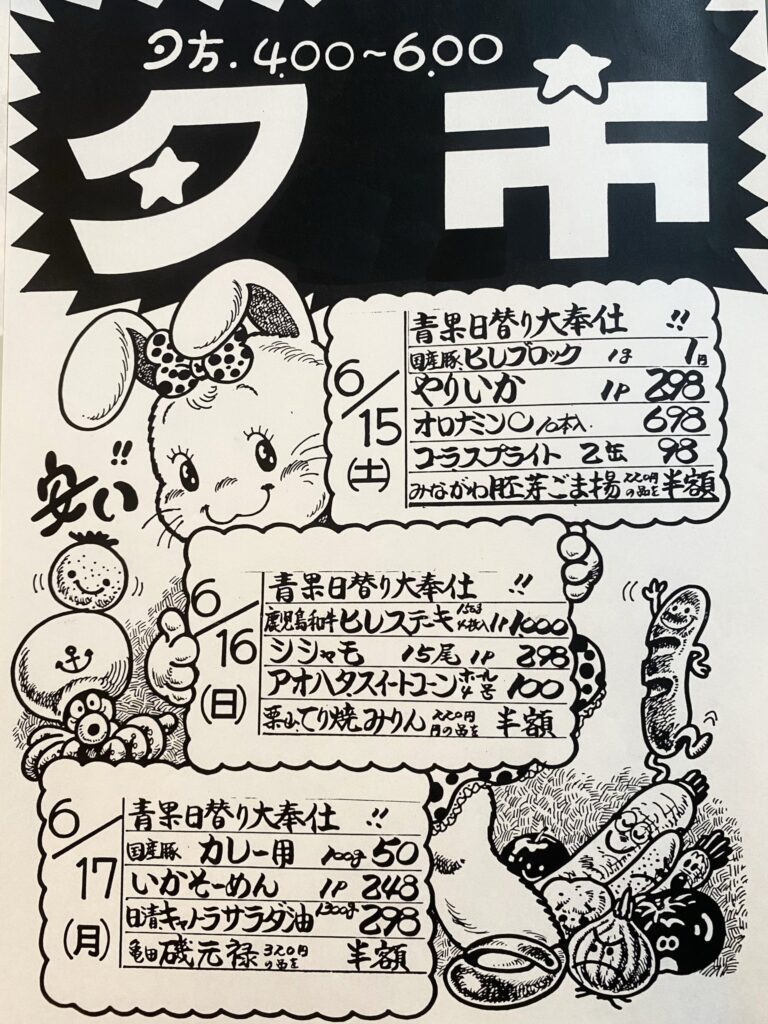 夕方.4.00～6.00
夕市
6/15(土)
青果日替り大奉仕!!
国産豚、ヒレブロック 1g 1円
やりいか 1P 298
オロナミンC 10本入. 698
コーラスプライト 2缶 98
みながわ胚芽ごま揚 220円の品を 半額
安い!!
6/16(日)
青果日替り大奉仕!!
鹿児島和牛ヒレステーキ 4枚入 1P 1000
シシャモ 15尾 1P 298
アオハタスイートコーン ホール4号 100
栗山、てり焼みりん 220円の品を 半額
6/17(月)
青果日替り大奉仕!!
国産豚 カレー用 100g 50
いかそーめん 1P 248
日清キャノーラサラダ油 1300g 298
亀田 磯元禄 320円の品を 半額